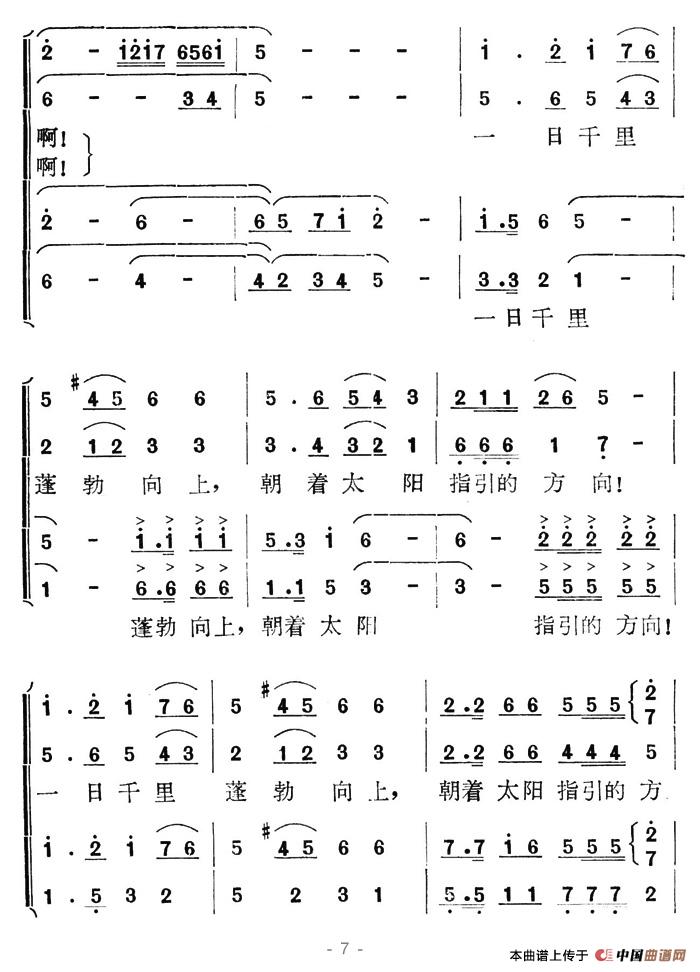 2̇ - i̇2̇i̇7 656i̇ | 5 - - - | i̇ . 2̇ i̇ 76
6 - - 34 | 5 - - - | 5 . 6 5 43
啊! 一 日千里
啊!
2̇ - 6 - | 65 7i̇ 2̇ - | i̇.5 6 5 -
6 - 4 - | 42 34 5 - | 3.3 2 1 -
一日千里
5 #45 6 6 | 5 . 6 54 3 | 211 26 5 -
2 12 3 3 | 3 . 4 32 1 | 6̣6̣6̣ 1 7̣ -
蓬 勃 向 上, 朝 着 太 阳 指引的 方 向!
5 - i̇.i̇ i̇i̇ | 5.3 i̇ 6 - | 6 - 2̇2̇2̇ 2̇2̇
1 - 6.6 66 | 1.1 5 3 - | 3 - 555 55
蓬勃 向上, 朝着 太 阳 指引的 方向!
i̇ . 2̇ i̇ 76 | 5 #45 6 6 | 2.2 66 555 {2̇ 7
5 . 6 5 43 | 2 12 3 3 | 2.2 66 444 5
一 日千里 蓬 勃 向 上, 朝着 太阳 指引的 方
i̇ . 2̇ i̇ 76 | 5 #45 6 6 | 7.7 i̇6 555 {2̇ 7
1 . 5̣ 3 2 | 5 2 3 1 | 5̣.5̣ 11 7̣7̣7̣ 2
- 7 -
本曲谱上传于 中国曲谱网